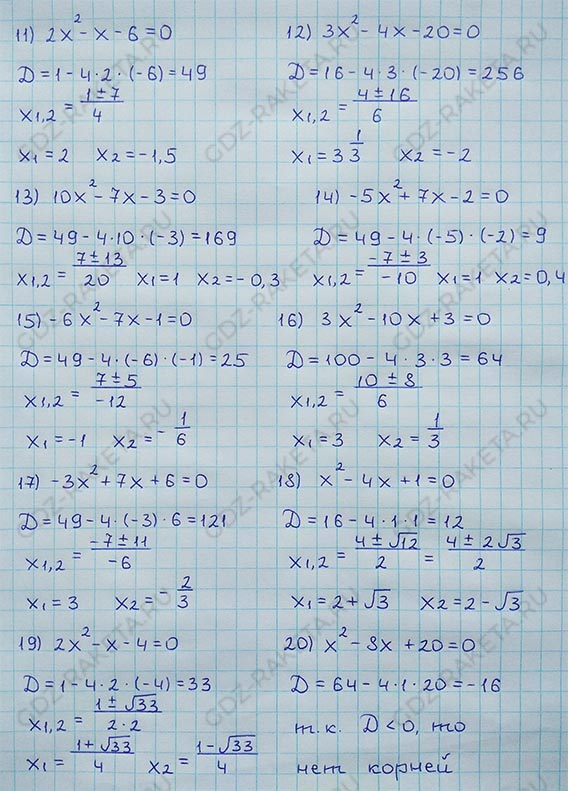 11) 2x² - x - 6 = 0
D = 1 - 4·2·(-6) = 49
x₁,₂ = (1 ± 7)/4
x₁ = 2   x₂ = -1,5
12) 3x² - 4x - 20 = 0
D = 16 - 4·3·(-20) = 256
x₁,₂ = (4 ± 16)/6
x₁ = 3 1/3   x₂ = -2
13) 10x² - 7x - 3 = 0
D = 49 - 4·10·(-3) = 169
x₁,₂ = (7 ± 13)/20   x₁ = 1   x₂ = -0,3
14) -5x² + 7x - 2 = 0
D = 49 - 4·(-5)·(-2) = 9
x₁,₂ = (-7 ± 3)/-10   x₁ = 1   x₂ = 0,4
15) -6x² - 7x - 1 = 0
D = 49 - 4·(-6)·(-1) = 25
x₁,₂ = (7 ± 5)/-12
x₁ = -1   x₂ = -1/6
16) 3x² - 10x + 3 = 0
D = 100 - 4·3·3 = 64
x₁,₂ = (10 ± 8)/6
x₁ = 3   x₂ = 1/3
17) -3x² + 7x + 6 = 0
D = 49 - 4·(-3)·6 = 121
x₁,₂ = (-7 ± 11)/-6
x₁ = 3   x₂ = -2/3
18) x² - 4x + 1 = 0
D = 16 - 4·1·1 = 12
x₁,₂ = (4 ± √12)/2 = (4 ± 2√3)/2
x₁ = 2 + √3   x₂ = 2 - √3
19) 2x² - x - 4 = 0
D = 1 - 4·2·(-4) = 33
x₁,₂ = (1 ± √33)/(2·2)
x₁ = (1 + √33)/4   x₂ = (1 - √33)/4
20) x² - 8x + 20 = 0
D = 64 - 4·1·20 = -16
т.к. D < 0, то
нет корней
GDZ-RAKETA.RU